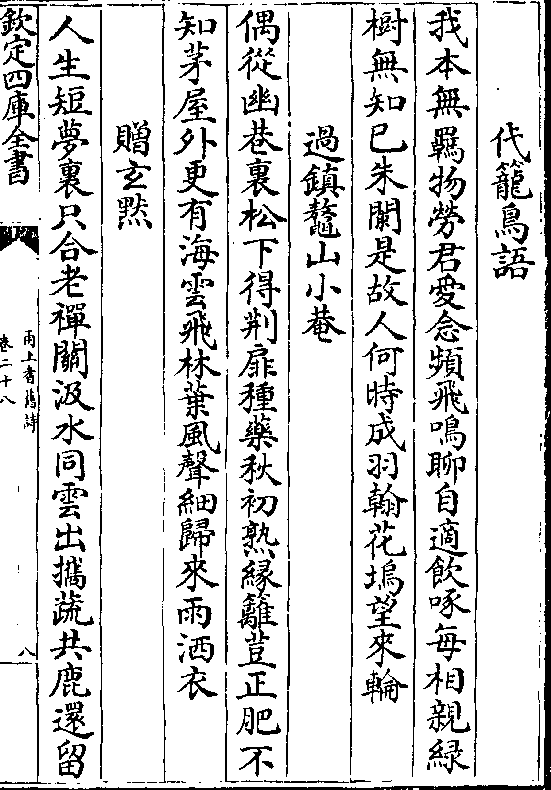 代籠鳥語
我本無羈物勞君愛念頻飛鳴聊自適飲啄每相親緑
樹無知已朱闌是故人何時成羽翰花塢望來輪
過鎮鼇山小菴
偶從幽巷裏松下得荆扉種藥秋初熟緣籬荳正肥不
知茅屋外更有海雲飛林葉風聲細歸來雨洒衣
贈玄黙
人生短夢裏只合老禪關汲水同雲出攜蔬共鹿還留
欽定四庫全書
甬上耆舊詩
卷二十八
八